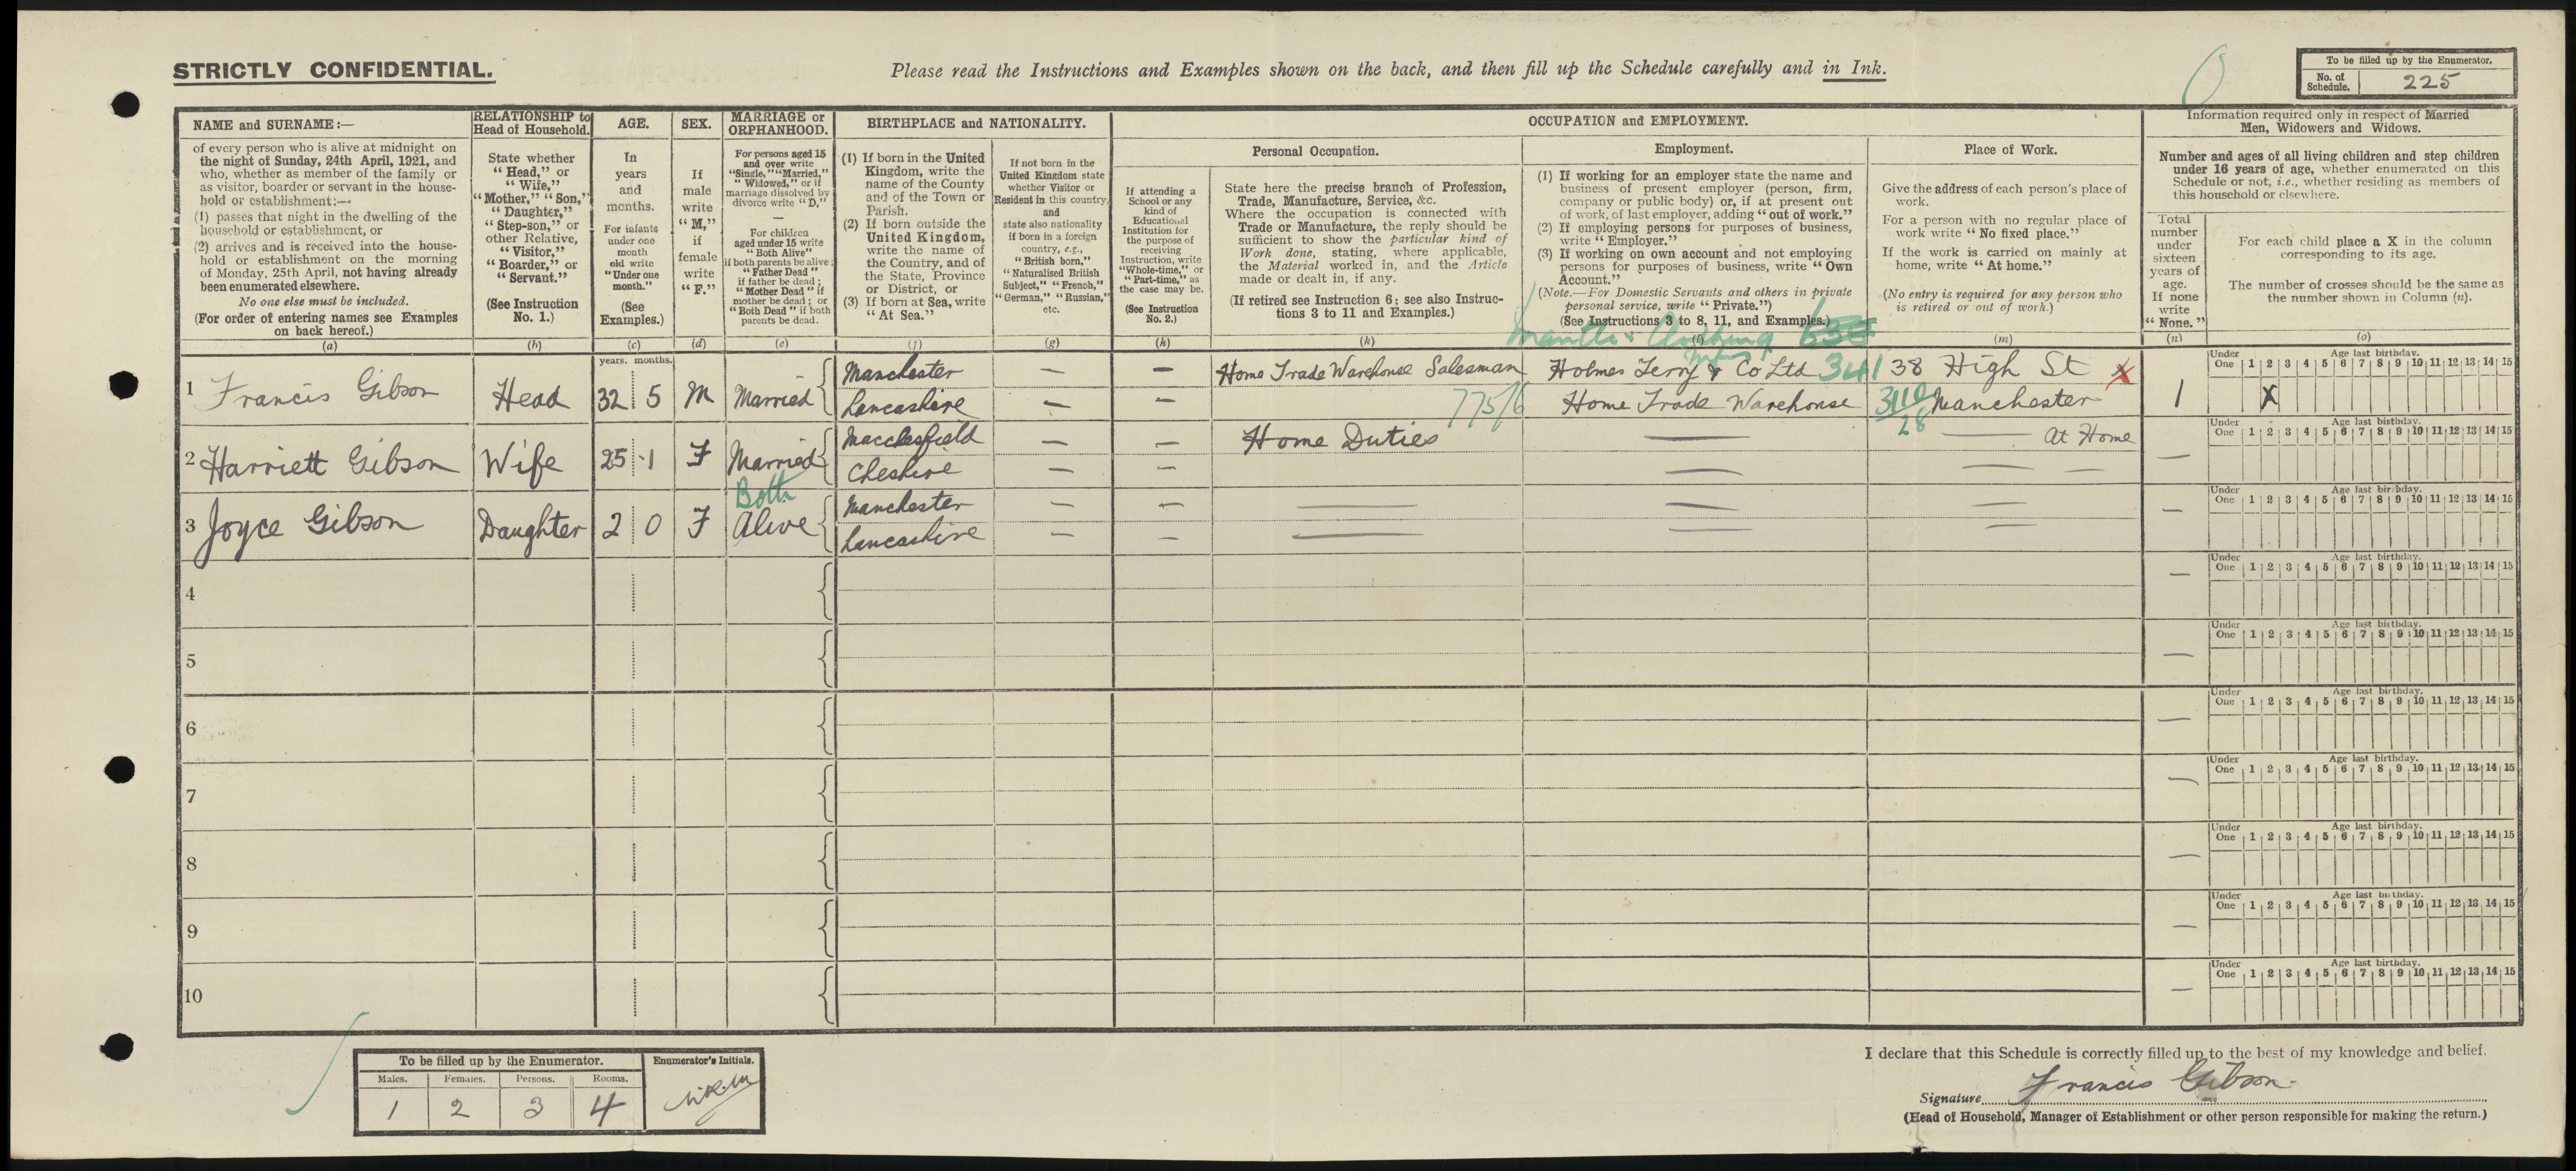 STRICTLY CONFIDENTIAL.
Please read the Instructions and Examples shown on the back, and then fill up the Schedule carefully and in Ink.
To be filled up by the Enumerator.
No. of Schedule. 225
NAME and SURNAME:—
of every person who is alive at midnight on
the night of Sunday, 24th April, 1921, and
who, whether as member of the family or
as visitor, boarder or servant in the house-
hold or establishment:—
(1) passes that night in the dwelling of the
household or establishment, or
(2) arrives and is received into the house-
hold or establishment on the morning
of Monday, 25th April, not having already
been enumerated elsewhere.
No one else must be included.
(For order of entering names see Examples
on back hereof.)
(a)
RELATIONSHIP to
Head of Household.
State whether
"Head," or
"Wife,"
"Mother," "Son,"
"Daughter,"
"Step-son," or
other Relative,
"Visitor,"
"Boarder," or
"Servant."
(See Instruction
No. 1.)
(b)
AGE.
In
years
and
months.
For infants
under one
month
old write
"Under one
month."
(See
Examples.)
(c)
SEX.
If
male
write
"M,"
if
female
write
"F."
(d)
MARRIAGE or
ORPHANHOOD.
For persons aged 15
and over write
"Single," "Married,"
"Widowed," or if
marriage dissolved by
divorce write "D."
—
For children
aged under 15 write
"Both Alive"
if both parents be alive;
"Father Dead"
if father be dead;
"Mother Dead" if
mother be dead; or
"Both Dead" if both
parents be dead.
(e)
BIRTHPLACE and NATIONALITY.
(1) If born in the United
Kingdom, write the
name of the County
and of the Town or
Parish.
(2) If born outside the
United Kingdom,
write the name of
the Country, and of
the State, Province
or District, or
(3) If born at Sea, write
"At Sea."
(f)
If not born in the
United Kingdom state
whether Visitor or
Resident in this country,
and
state also nationality
if born in a foreign
country, e.g.,
"British born,"
"Naturalised British
Subject," "French,"
"German," "Russian,"
etc.
(g)
OCCUPATION and EMPLOYMENT.
If attending a
School or any
kind of
Educational
Institution for
the purpose of
receiving
Instruction, write
"Whole-time," or
"Part-time," as
the case may be.
(See Instruction
No. 2.)
(h)
Personal Occupation.
State here the precise branch of Profession,
Trade, Manufacture, Service, &c.
Where the occupation is connected with
Trade or Manufacture, the reply should be
sufficient to show the particular kind of
Work done, stating, where applicable,
the Material worked in, and the Article
made or dealt in, if any.
(If retired see Instruction 6; see also Instruc-
tions 3 to 11 and Examples.)
(k)
Employment.
(1) If working for an employer state the name and
business of present employer (person, firm,
company or public body) or, if at present out
of work, of last employer, adding "out of work."
(2) If employing persons for purposes of business,
write "Employer."
(3) If working on own account and not employing
persons for purposes of business, write "Own
Account."
(Note.—For Domestic Servants and others in private
personal service, write "Private.")
(See Instructions 3 to 8, 11, and Examples.)
(l)
Place of Work.
Give the address of each person's place of
work.
For a person with no regular place of
work write "No fixed place."
If the work is carried on mainly at
home, write "At home."
(No entry is required for any person who
is retired or out of work.)
(m)
Information required only in respect of Married
Men, Widowers and Widows.
Number and ages of all living children and step children
under 16 years of age, whether enumerated on this
Schedule or not, i.e., whether residing as members of
this household or elsewhere.
Total
number
under
sixteen
years of
age.
If none
write
"None."
(n)
For each child place a X in the column
corresponding to its age.
The number of crosses should be the same as
the number shown in Column (n).
(o)
years. months.
1 Francis Gibson Head 32 5 M Married Manchester — — Home Trade Warehouse Salesman Holmes Terry & Co Ltd 341 38 High St X
Lancashire — — 775/6 Home Trade Warehouse Manchester 1 X
Under One 1 2 3 4 5 6 7 8 9 10 11 12 13 14 15
Age last birthday.
2 Harriett Gibson Wife 25 1 F Married Macclesfield — — Home Duties — — At Home
Cheshire — — — — —
Under One 1 2 3 4 5 6 7 8 9 10 11 12 13 14 15
Age last birthday.
3 Joyce Gibson Daughter 2 0 F Both Alive Manchester — — — — —
Lancashire — — — — —
Under One 1 2 3 4 5 6 7 8 9 10 11 12 13 14 15
Age last birthday.
4 —
Under One 1 2 3 4 5 6 7 8 9 10 11 12 13 14 15
Age last birthday.
5 —
Under One 1 2 3 4 5 6 7 8 9 10 11 12 13 14 15
Age last birthday.
6 —
Under One 1 2 3 4 5 6 7 8 9 10 11 12 13 14 15
Age last birthday.
7 —
Under One 1 2 3 4 5 6 7 8 9 10 11 12 13 14 15
Age last birthday.
8 —
Under One 1 2 3 4 5 6 7 8 9 10 11 12 13 14 15
Age last birthday.
9 —
Under One 1 2 3 4 5 6 7 8 9 10 11 12 13 14 15
Age last birthday.
10 —
Under One 1 2 3 4 5 6 7 8 9 10 11 12 13 14 15
Age last birthday.
To be filled up by the Enumerator.
Enumerator's Initials.
Males. Females. Persons. Rooms.
1 2 3 4
I declare that this Schedule is correctly filled up to the best of my knowledge and belief.
Signature Francis Gibson
(Head of Household, Manager of Establishment or other person responsible for making the return.)